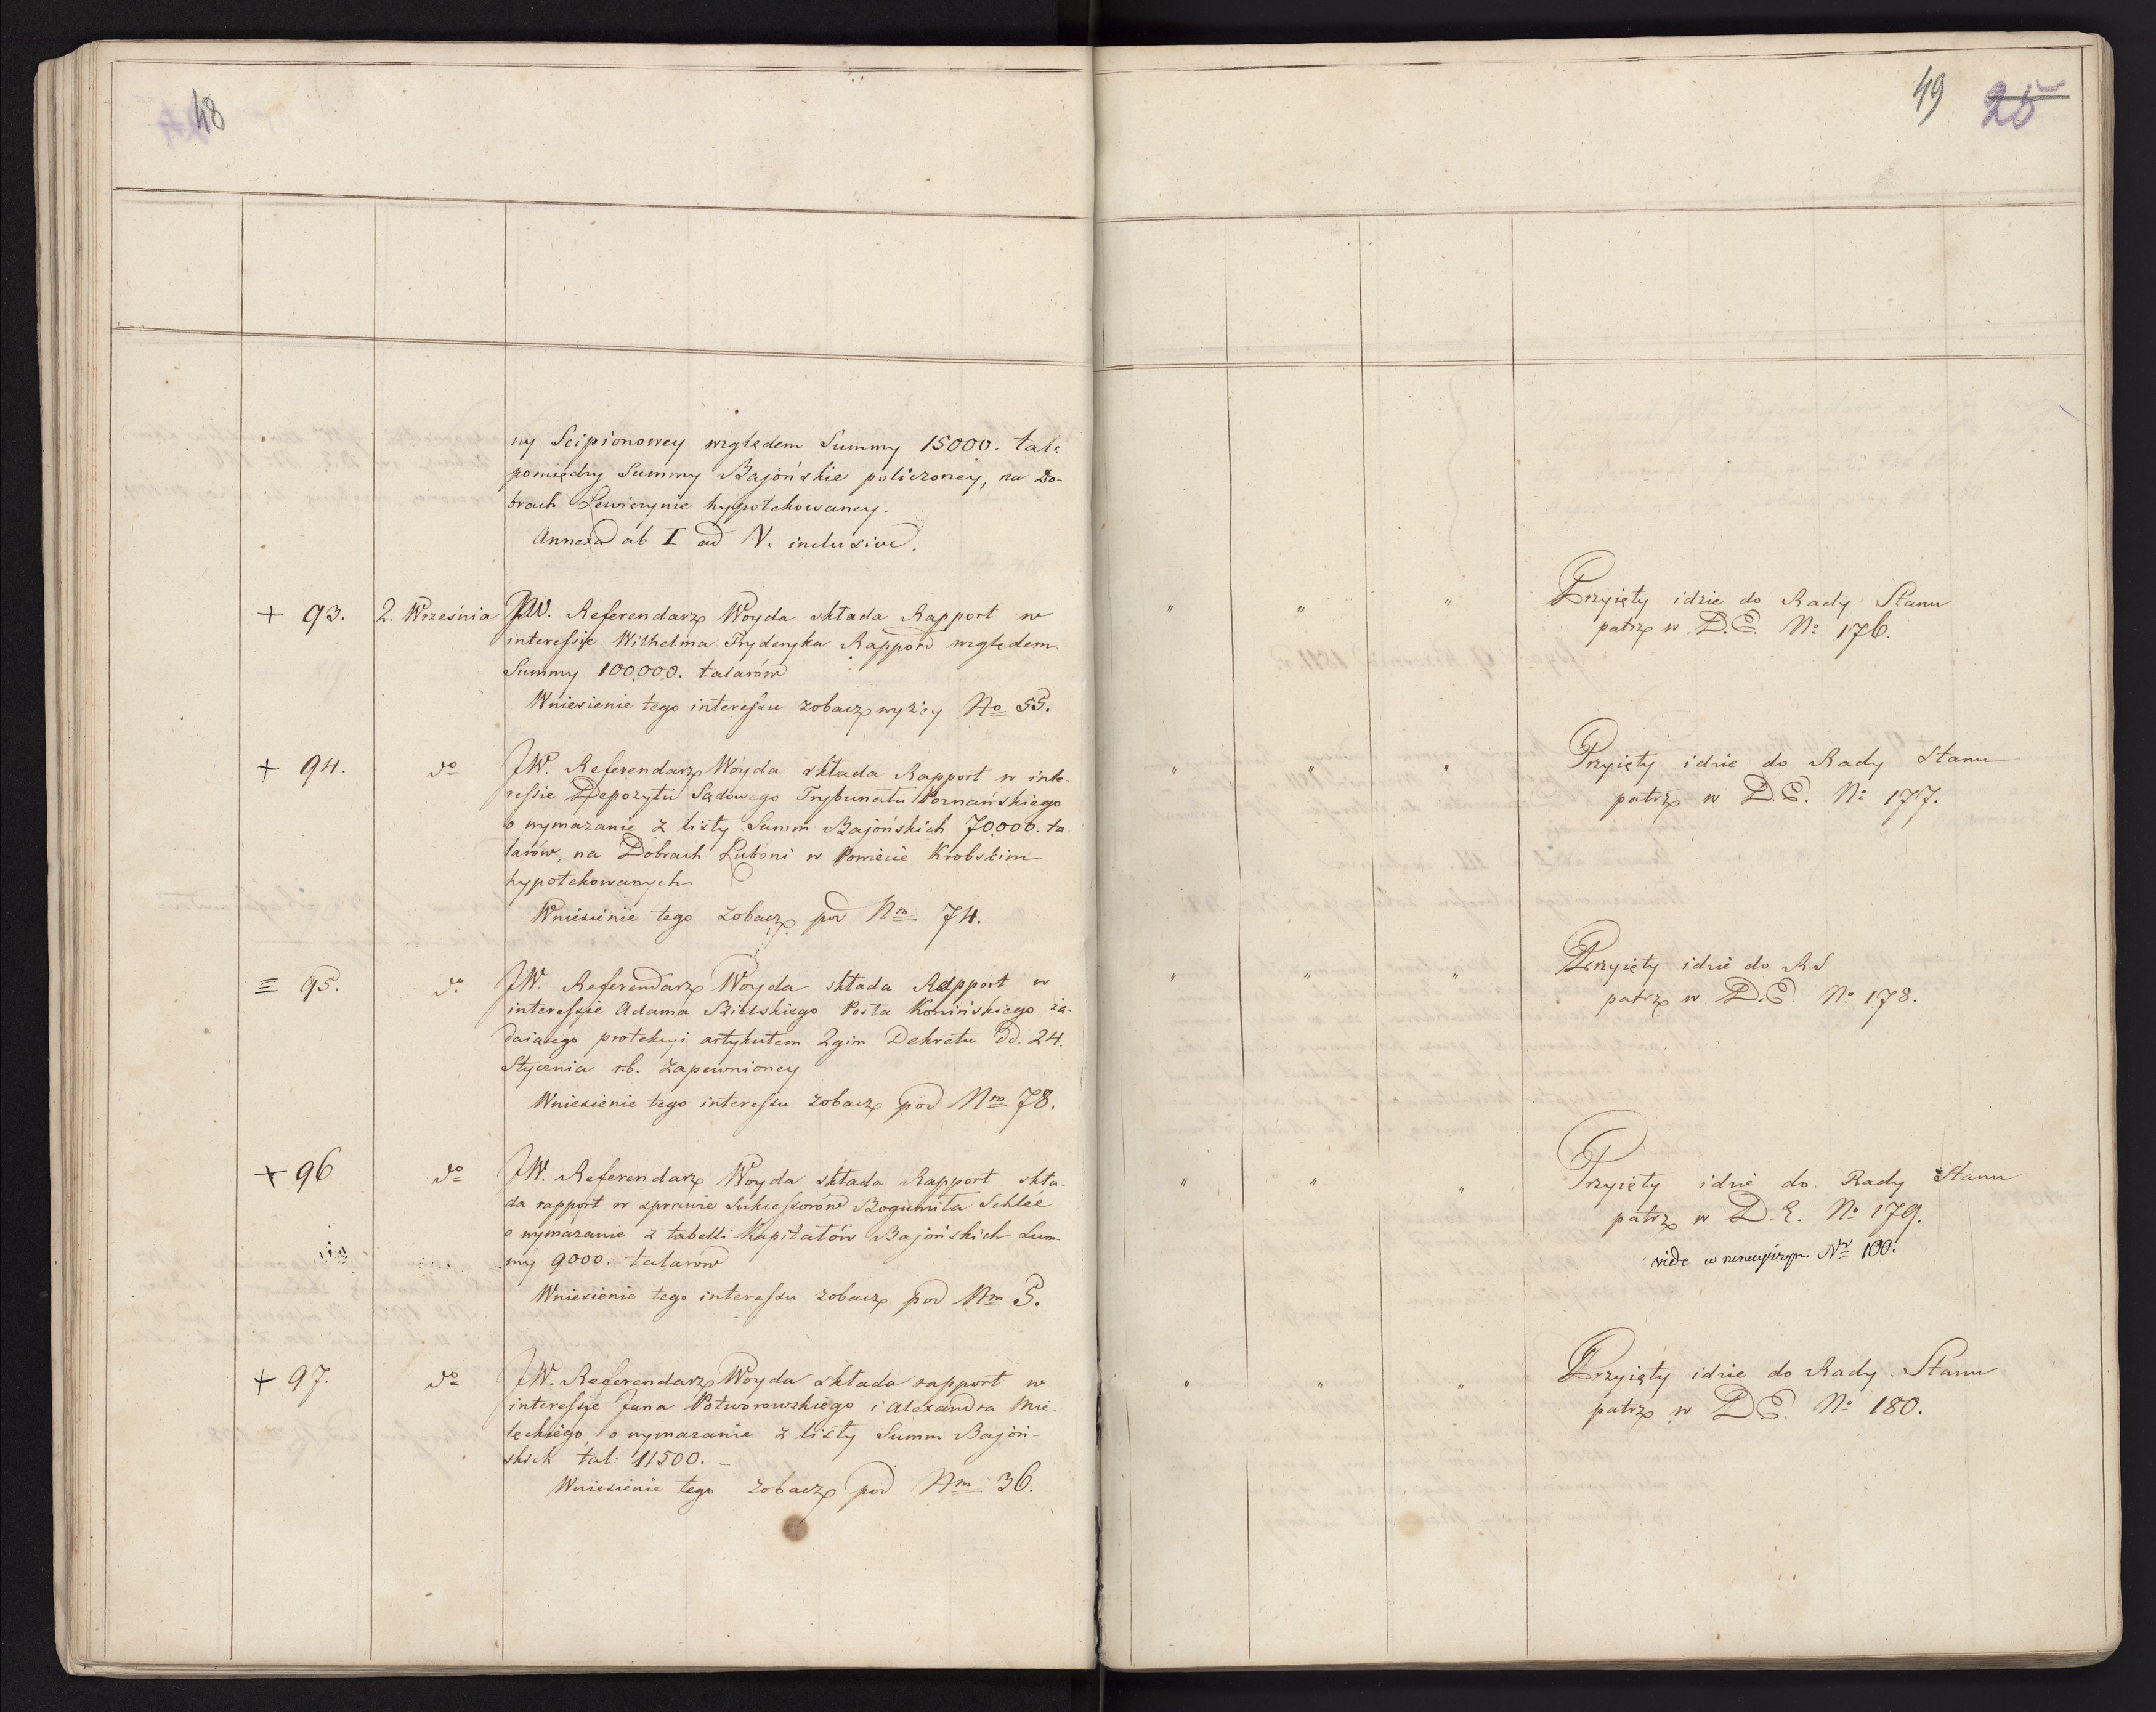 48
49 25
ny Scipionowey względem Summy 15000. tal:
pomiędzy Summy Bajońskie policzoney, na Do-
brach Lewiczynie hypotekowaney.
Annexa ab I ad V. inclusive.
+ 93. 2. Września JW. Referendarz Woyda składa Rapport w
interessie Wilhelma Fryderyka Rappard względem
Summy 100,000. talarów
Wniesienie tego interessu zobacz wyżey No 55.
" " " Przyięty idzie do Rady Stanu
patrz w D.E. No 176.
+ 94. do JW. Referendarz Woyda składa Rapport w inte-
ressie Depozytu Sądowego Trybunału Poznańskiego
o wymazanie z listy Summ Bajońskich 70,000. ta
larów, na Dobrach Luboni w Powiecie Krobskim
hypotekowanych
Wniesienie tego zobacz pod Nm 74.
" " " Przyięty idzie do Rady Stanu
patrz w D.E. No 177.
= 95. do JW. Referendarz Woyda składa Rapport w
interessie Adama Bielskiego Posła Konińskiego żą-
daiącego protekcyi artykułem 2gim Dekretu dd. 24.
Stycznia r.b. zapewnioney
Wniesienie tego interessu zobacz pod Nm 78.
" " " Przyięty idzie do RS
patrz w D.E. No 178.
+ 96 do JW. Referendarz Woyda składa Rapport skła-
da rapport w sprawie Sukcessorów Bogumiła Schlée
o wymazanie z tabelli Kapitałów Bajońskich Sum-
my 9000. talarów
Wniesienie tego interessu zobacz pod Nm 5.
" " " Przyięty idzie do Rady Stanu
patrz w D.E. No 179.
vide w Nr 100.
+ 97. do JW. Referendarz Woyda składa rapport w
interessie Jana Potworowskiego i Alexandra Mie-
lęckiego, o wymazanie z listy Summ Bajoń-
skich tal: 11500. –
Wniesienie tego zobacz pod Nm 36.
" " " Przyięty idzie do Rady Stanu
patrz w D.E. No 180.